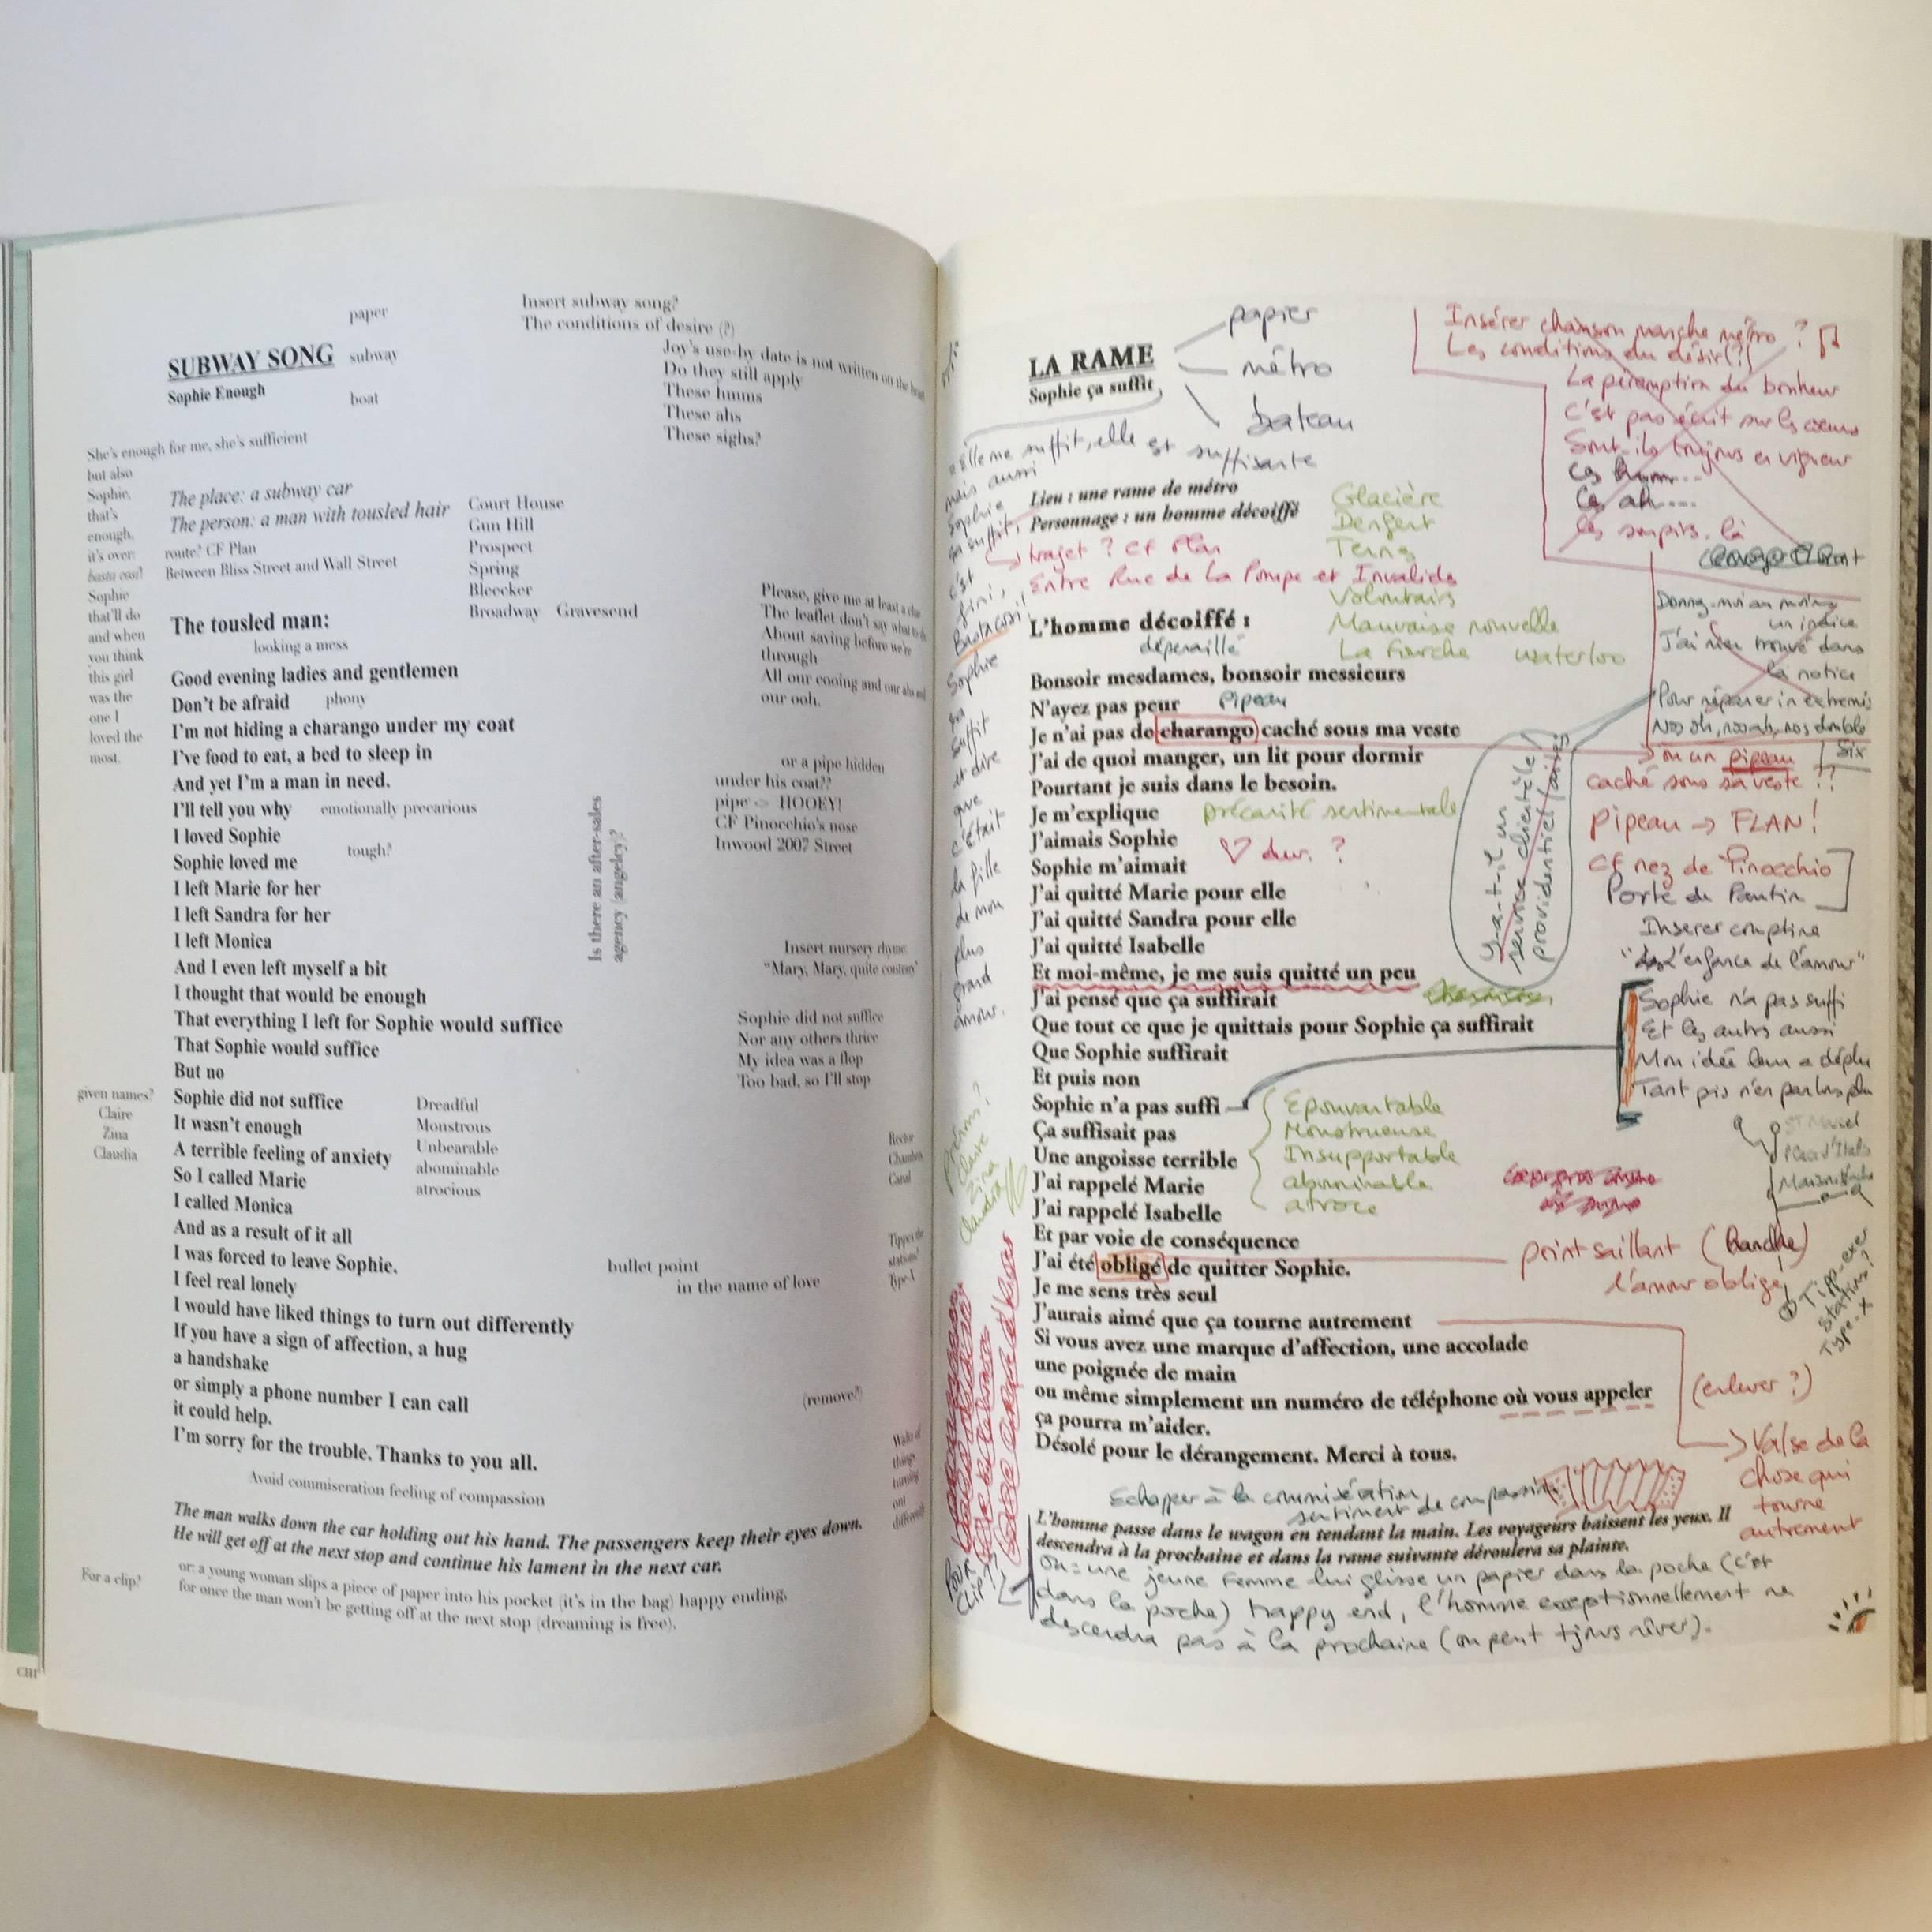 paper
Insert subway song?
The conditions of desire (?)
SUBWAY SONG
subway
Joy's use-by date is not written on the
Do they still apply
Sophie Enough
boat
These hmms
These ahs
These sighs?
She's enough for me, she's sufficient
but also
Sophie,
that's
enough,
it's over:
basta così!
Sophie
that'll do
and when
you think
this girl
was the
one I
loved the
most.
The place: a subway car
The person: a man with tousled hair
route? CF Plan
Between Bliss Street and Wall Street
Court House
Gun Hill
Prospect
Spring
Bleecker
Broadway Gravesend
The tousled man:
looking a mess
Please, give me at least a
The leaflet don't say what to
About saving before we're
through
All our cooing and our ahs and
our ooh.
Good evening ladies and gentlemen
Don't be afraid
phony
I'm not hiding a charango under my coat
I've food to eat, a bed to sleep in
And yet I'm a man in need.
I'll tell you why
emotionally precarious
I loved Sophie
Sophie loved me
tough?
I left Marie for her
I left Sandra for her
I left Monica
And I even left myself a bit
I thought that would be enough
That everything I left for Sophie would suffice
That Sophie would suffice
But no
Sophie did not suffice
It wasn't enough
A terrible feeling of anxiety
So I called Marie
I called Monica
And as a result of it all
I was forced to leave Sophie.
I feel real lonely
I would have liked things to turn out differently
If you have a sign of affection, a hug
a handshake
or simply a phone number I can call
it could help.
I'm sorry for the trouble. Thanks to you all.
or a pipe hidden
under his coat??
pipe <> HOOEY!
CF Pinocchio's nose
Inwood 2007 Street
Is there an after-sales
agency (angeley)?
Insert nursery rhyme
"Mary, Mary, quite contrary"
Sophie did not suffice
Nor any others thrice
My idea was a flop
Too bad, so I'll stop
given names?
Claire
Zina
Claudia
Dreadful
Monstrous
Unbearable
abominable
atrocious
Rector
Chambers
Canal
Tippex the
stations?
Type-
bullet point
in the name of love
(remove?)
Waltz of
things
turning
out
differently
Avoid commiseration feeling of compassion
The man walks down the car holding out his hand. The passengers keep their eyes down.
He will get off at the next stop and continue his lament in the next car.
For a clip?
or: a young woman slips a piece of paper into his pocket (it's in the bag) happy ending,
for once the man won't be getting off at the next stop (dreaming is free).
CHI
LA RAME
Sophie ça suffit
papier
métro
bateau
Insérer chanson manche métro ?
Les conditions du désir(?)
La péremption du bonheur
C'est pas écrit sur les cœurs
Sont-ils toujours en vigueur
ces hum...
Ces ah....
Ces soupirs. là
=Elle me suffit, elle est suffisante
mais aussi
Sophie
ça suffit,
c'est
fini,
Basta così!
Sophie
ça
suffit
et dire
que
c'était
la fille
de mon
plus
grand
amour.
Lieu : une rame de métro
Personnage : un homme décoiffé
trajet ? cf Plan
Entre Rue de la Pompe et Invalides
Glacière
Denfert
Ternes
Volontaires
Mauvaise nouvelle
La Fourche
Waterloo
Donnez-moi au moins
un indice
J'ai rien trouvé dans
la notice
Pour réparer in extremis
Nos oh, nos ah, nos double
Six
L'homme décoiffé :
dépenaillé
Bonsoir mesdames, bonsoir messieurs
N'ayez pas peur
Pipeau
Je n'ai pas de charango caché sous ma veste
J'ai de quoi manger, un lit pour dormir
Pourtant je suis dans le besoin.
Je m'explique
précarité sentimentale
J'aimais Sophie
Sophie m'aimait
dur. ?
J'ai quitté Marie pour elle
J'ai quitté Sandra pour elle
J'ai quitté Isabelle
Et moi-même, je me suis quitté un peu
J'ai pensé que ça suffirait
Que tout ce que je quittais pour Sophie ça suffirait
Que Sophie suffirait
Et puis non
Sophie n'a pas suffi
Ça suffisait pas
Une angoisse terrible
J'ai rappelé Marie
J'ai rappelé Isabelle
Et par voie de conséquence
J'ai été obligé de quitter Sophie.
Je me sens très seul
J'aurais aimé que ça tourne autrement
Si vous avez une marque d'affection, une accolade
une poignée de main
ou même simplement un numéro de téléphone où vous appeler
ça pourra m'aider.
Désolé pour le dérangement. Merci à tous.
ou un pipeau
caché sous sa veste ??
pipeau → FLAN!
cf nez de Pinocchio
Porte de Pantin
Y-a-t-il un
service clientèle
providentiel
Insérer comptine
l'enfance de l'amour"
Sophie n'a pas suffi
Et les autres aussi
Mon idée leur a déplu
Tant pis n'en parlons plus
Epouvantable
Monstrueuse
Insupportable
abominable
atroce
Prénoms?
Claire
Zina
Claudia
point saillant (Manche)
l'amour oblige
Tipp-exer
stations?
Type-x
(enlever ?)
Valse de la
chose qui
tourne
autrement
Echapper à la commisération
sentiment de compassion
L'homme passe dans le wagon en tendant la main. Les voyageurs baissent les yeux. Il
descendra à la prochaine et dans la rame suivante déroulera sa plainte.
Pour
clip?
ou = une jeune femme lui glisse un papier dans la poche (c'est
dans la poche) happy end, l'homme exceptionnellement ne
descendra pas à la prochaine (on peut tjours rêver).